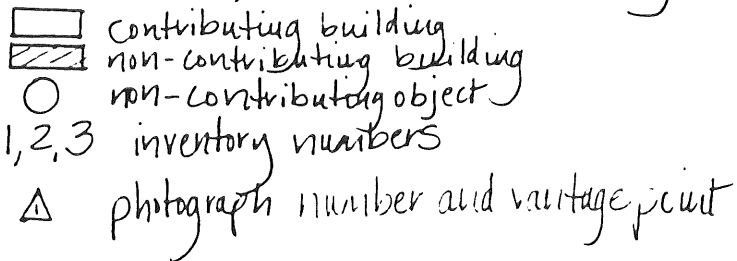 contributing building
non-contributing building
non-contributing object
1,2,3 inventory numbers
1 photograph number and vantage point